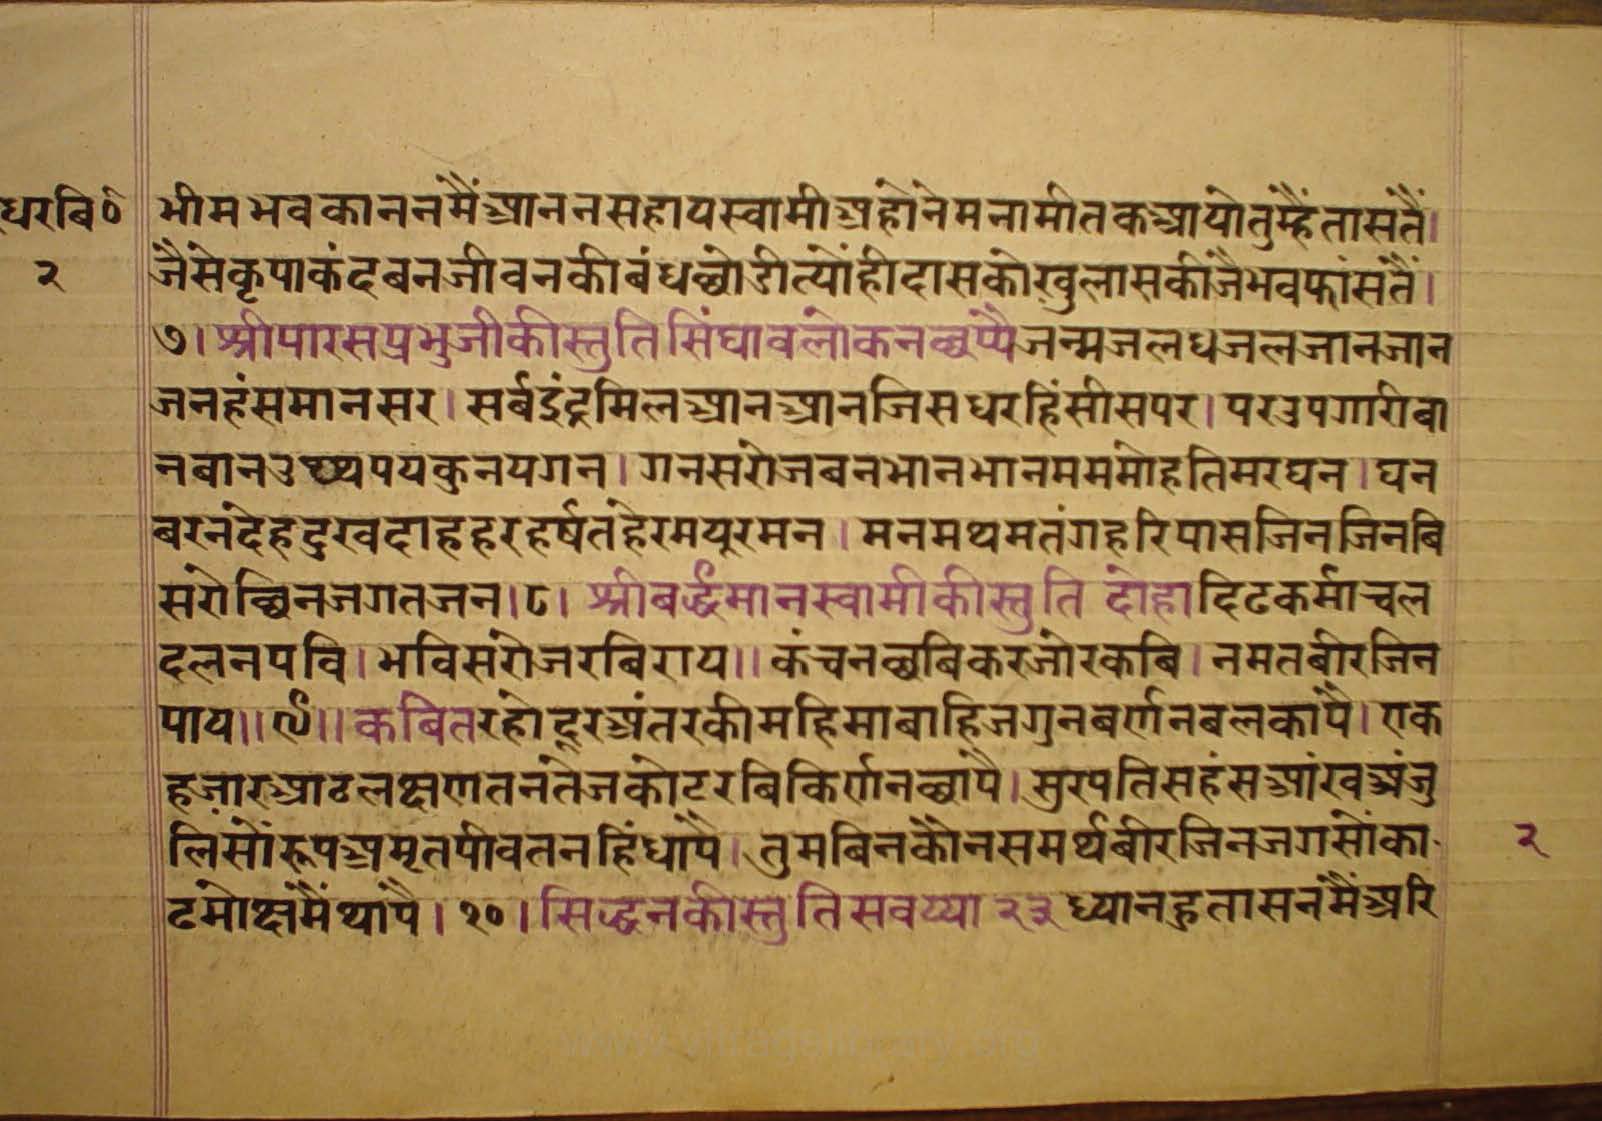 धरबि०
२
भीमभवकाननमैंआननसहायस्वामीअहोनेमनामीतकआयोतुम्हैंतासतैं।
जैसेकृपाकंदबनजीवनकीबंधछोडीत्योंहीदासकोखुलासकीजैभवफांसतैं।
७। श्रीपारसप्रभुजीकीस्तुतिसिंघावलोकनछप्पैजन्मजलधजलजानजान
जनहंसमानसर। सर्बइंद्रमिलआनआनजिसधरहिंसीसपर। परउपगारीबा
नबानउथ्थपयकुनयगन। गनसरोजबनभानभानमममोहतिमरघन। घन
बरनदेहदुखदाहहरहर्षतहेरमयुरमन। मनमथमतंगहरिपासजिनजिनबि
सरोछिनजगतजन।८। श्रीबर्द्धमानस्वामीकीस्तुति दोहादिढकर्माचल
दलनपवि। भविसरोजरबिराय॥ कंचनछबिकरजोरकबि। नमतबीरजिन
पाय॥९॥ कबितरहोदूरअंतरकीमहिमाबाहिजगुनबर्णनबलकापै। एक
हजारुआठलक्षणतनतेजकोटरबिकिर्णनछापै। सुरपतिसहंसआंखअंजु
लिसोंरूपअमृतपीवतनहिंधापै। तुमबिनकौनसमर्थबीरजिनजगसोंका
ढमोक्षमैंथापै। १०। सिद्धनकीस्तुतिसवय्या २३ ध्यानहुतासनमैंअरि
२
www.vitragelibrary.org